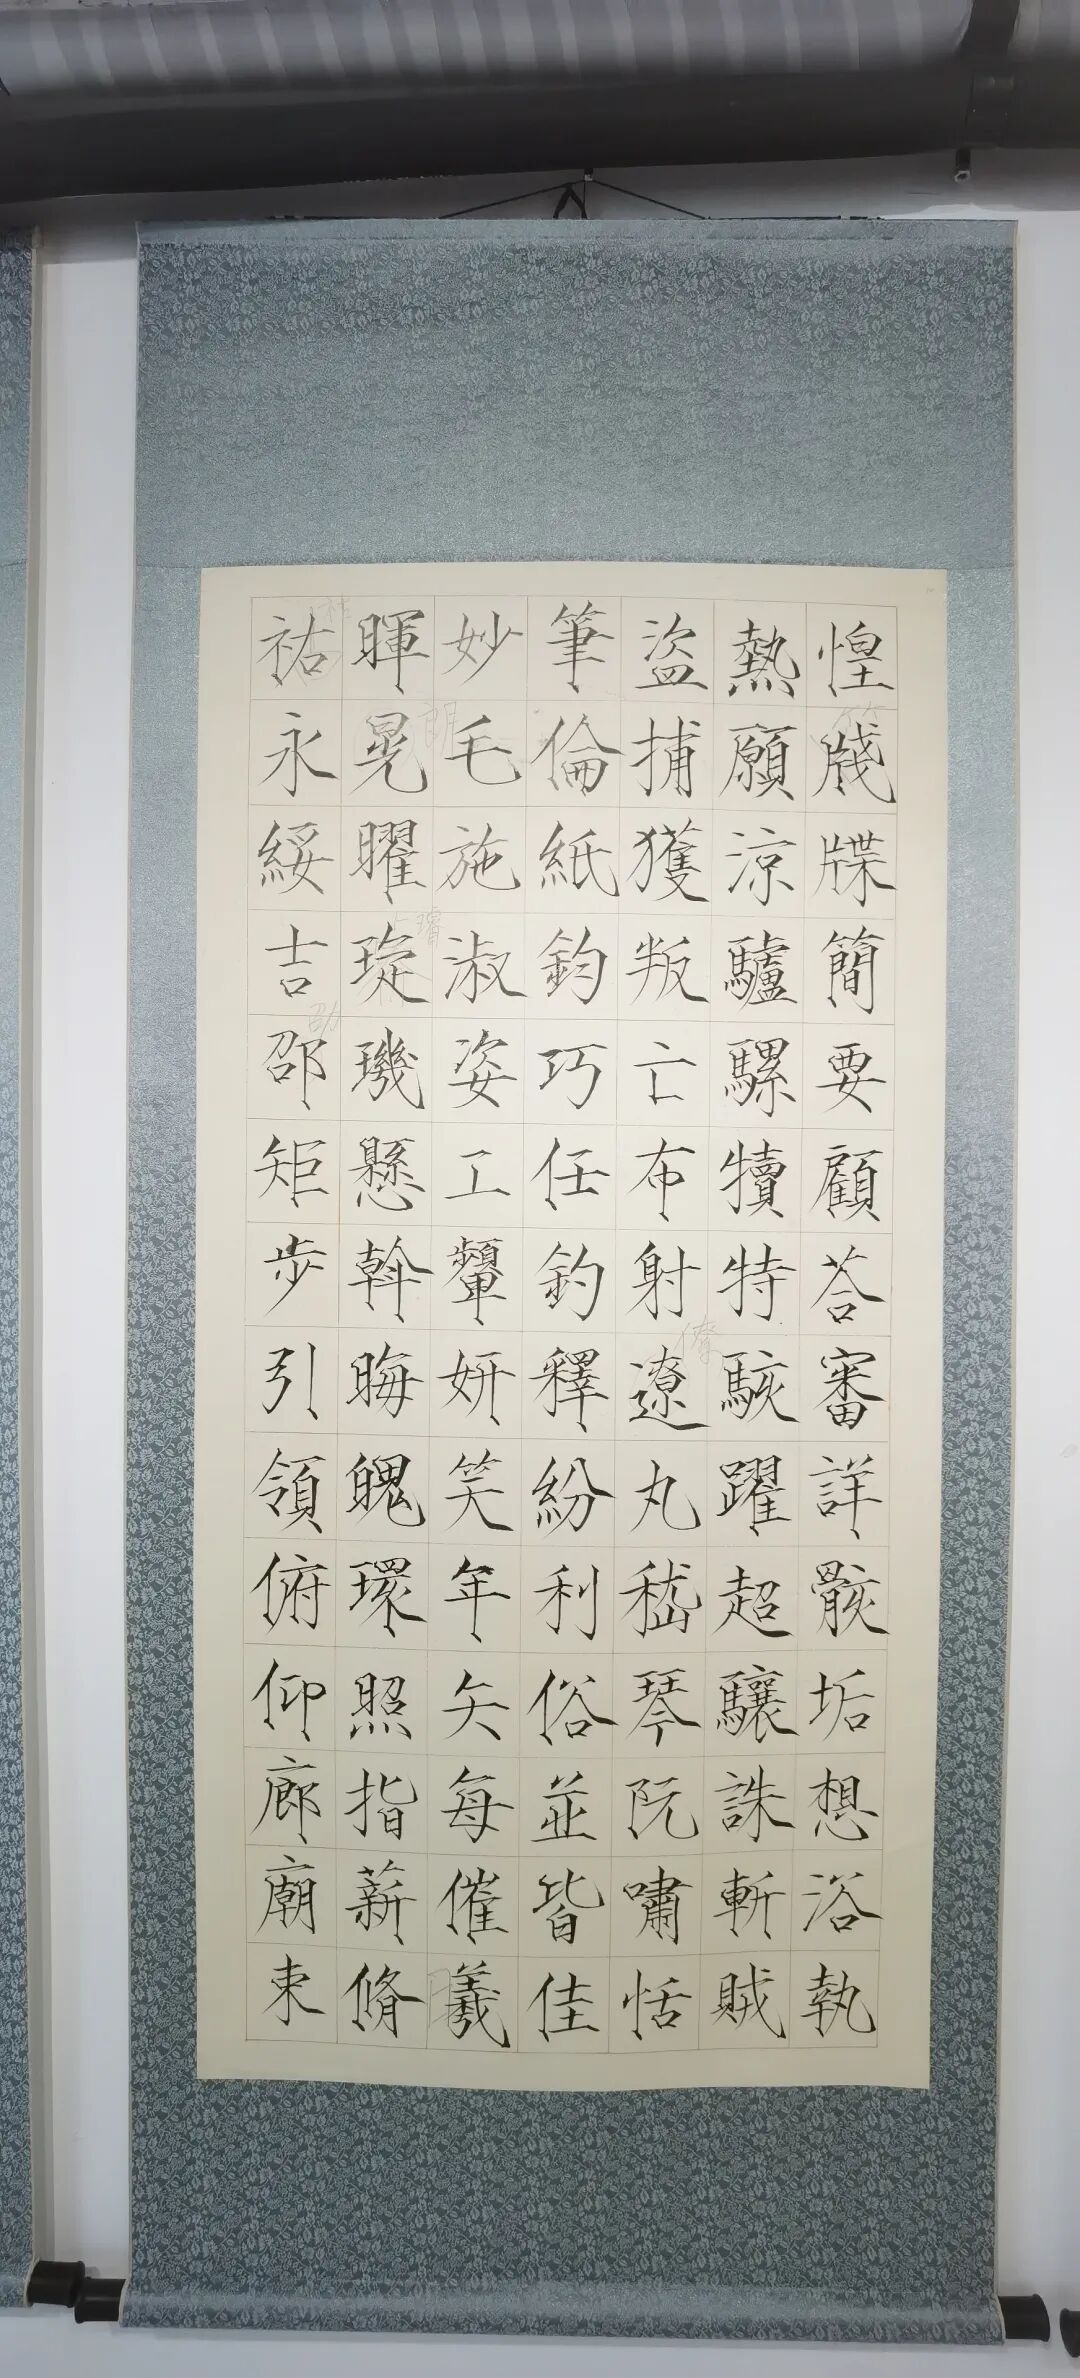 惶牋牒簡要顧荅審詳骸垢想浴執
熱願涼驢騾犢特駭躍超驤誅斬賊
盜捕獲叛亡布射遼丸嵇琴阮嘯恬
筆倫紙鈞巧任釣釋紛利俗並皆佳
妙毛施淑姿工顰妍笑年矢每催羲
暉晃曜琁璣懸斡晦魄環照指薪脩
祜永綏吉邵矩步引領俯仰廊廟束